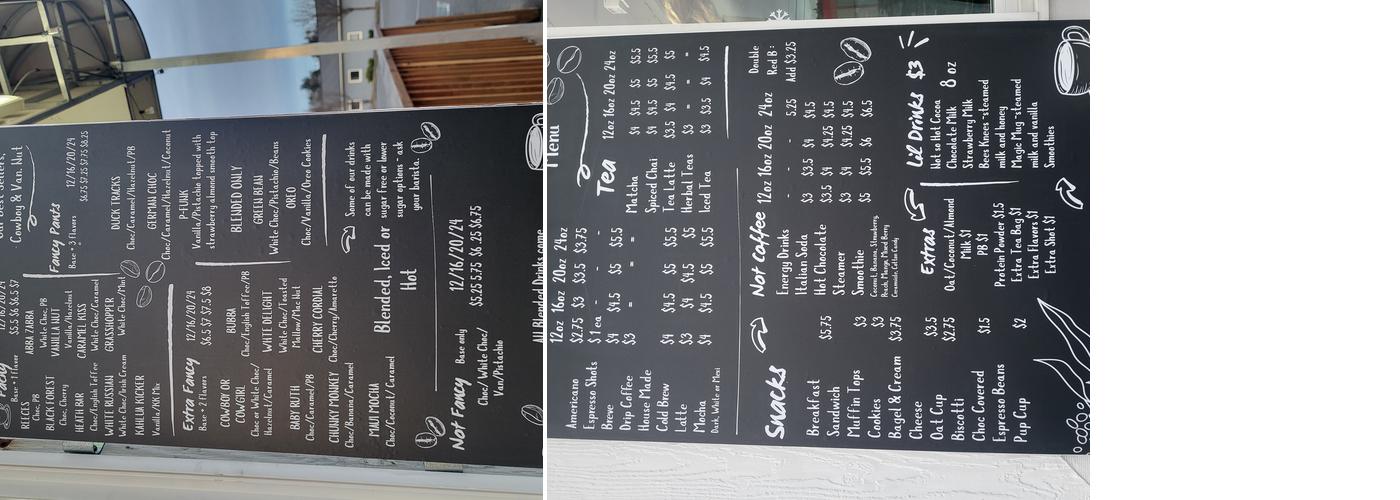 Cowboy & Van. Nut
Fancy
12/16/20/24
Base + 1 flavor
$5.5 $6 $6.5 $7
REECES
Choc, PB
BLACK FOREST
Choc, Cherry
HEATH BAR
Choc/English Toffee
WHITE RUSSIAN
White Choc/Irish Cream
KAHLUA KICKER
Vanilla/HK Mix
ABBA ZABBA
White Choc, PB
VANILLA NUT
Vanilla/Hazelnut
CARAMEL KISS
White Choc/Caramel
GRASSHOPPER
White Choc/Mint
Fancy Pants
12/16/20/24
Base + 3 flavors
$6.75 $7.25 $7.75 $8.25
DUCK TRACKS
Choc/Caramel/Hazelnut/PB
GERMAN CHOC
Choc/Caramel/Hazelnut/Coconut
P-FUNK
Vanilla/Pistachio topped with
strawberry almond smooth top
BLENDED ONLY
GREEN BEAN
White Choc/Pistachio/Beans
OREO
Choc/Vanilla/Oreo Cookies
Extra Fancy
12/16/20/24
Base + 2 Flavors
$6.5 $7 $7.5 $8
COWBOY OR
COWGIRL
Choc or White Choc/
Hazelnut/Caramel
BABY RUTH
Choc/Caramel/PB
CHUNKY MONKEY
Choc/Banana/Caramel
MAUI MOCHA
Choc/Coconut/Caramel
BUBBA
Choc/English Toffee/PB
WHITE DELIGHT
White Choc/Toasted
Mallow/Mac Nut
CHERRY CORDIAL
Choc/Cherry/Amaretto
Some of our drinks
can be made with
sugar free or lower
sugar options - ask
your barista.
Blended, Iced or
Hot
Not Fancy
Base only
12/16/20/24
Choc/ White Choc/
Van/Pistachio
$5.25 5.75 $6 .25 $6.75
All Blended Drinks come
Menu
12oz 16oz 20oz 24oz
Americano $2.75 $3 $3.5 $3.75
Espresso Shots $1 ea - - -
Breve $4 $4.5 $5 $5.5
Drip Coffee $3 = = =
House Made
Cold Brew $4 $4.5 $5 $5.5
Latte $3 $4 $4.5 $5
Mocha $4 $4.5 $5 $5.5
Dark, White or Mexi
Tea
12oz 16oz 20oz 24oz
Matcha $4 $4.5 $5 $5.5
Spiced Chai $4 $4.5 $5 $5.5
Tea Latte $3.5 $4 $4.5 $5
Herbal Teas $3 = = =
Iced Tea $3 $3.5 $4 $4.5
Snacks
Breakfast
Sandwich $5.75
Muffin Tops $3
Cookies $3
Bagel & Cream
Cheese $3.75
Oat Cup $3.5
Biscotti $2.75
Choc Covered
Espresso Beans $1.5
Pup Cup $2
Not Coffee
12oz 16oz 20oz 24oz
Energy Drinks - - - 5.25
Italian Soda $3 $3.5 $4 $4.5
Hot Chocolate $3.5 $4 $4.25 $4.5
Steamer $3 $4 $4.25 $4.5
Smoothie $5 $5.5 $6 $6.5
Coconut, Banana, Strawberry,
Peach, Mango, Mixed Berry
Creamsicle, Cotton Candy
Double
Red B :
Add $3.25
Extras
Oat/Coconut/Almond
Milk $1
PB $1
Protein Powder $1.5
Extra Tea Bag $1
Extra Flavors $1
Extra Shot $1
Lil Drinks $3
8 oz
Not so Hot Cocoa
Chocolate Milk
Strawberry Milk
Bees Knees -steamed
milk and honey
Magic Mug -steamed
milk and vanilla
Smoothies